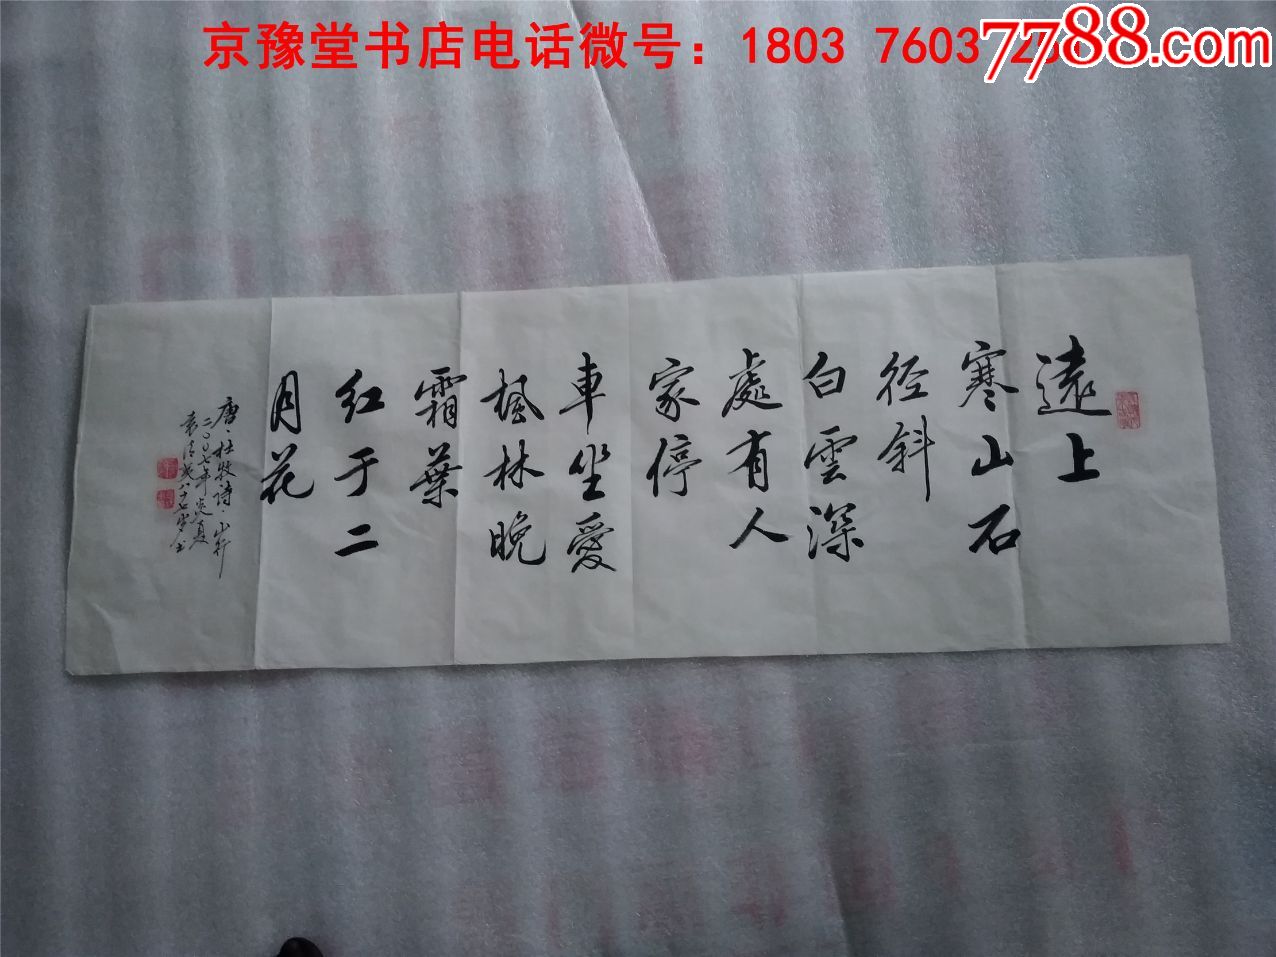 京豫堂书店电话微号：1803 7603
7788.com
遠上
寒山石
径斜
白雲深
處有人
家停
車坐愛
楓林晚
霜葉
红于二
月花
唐·杜牧诗·山行
二〇〇七年炎夏
八十七岁书